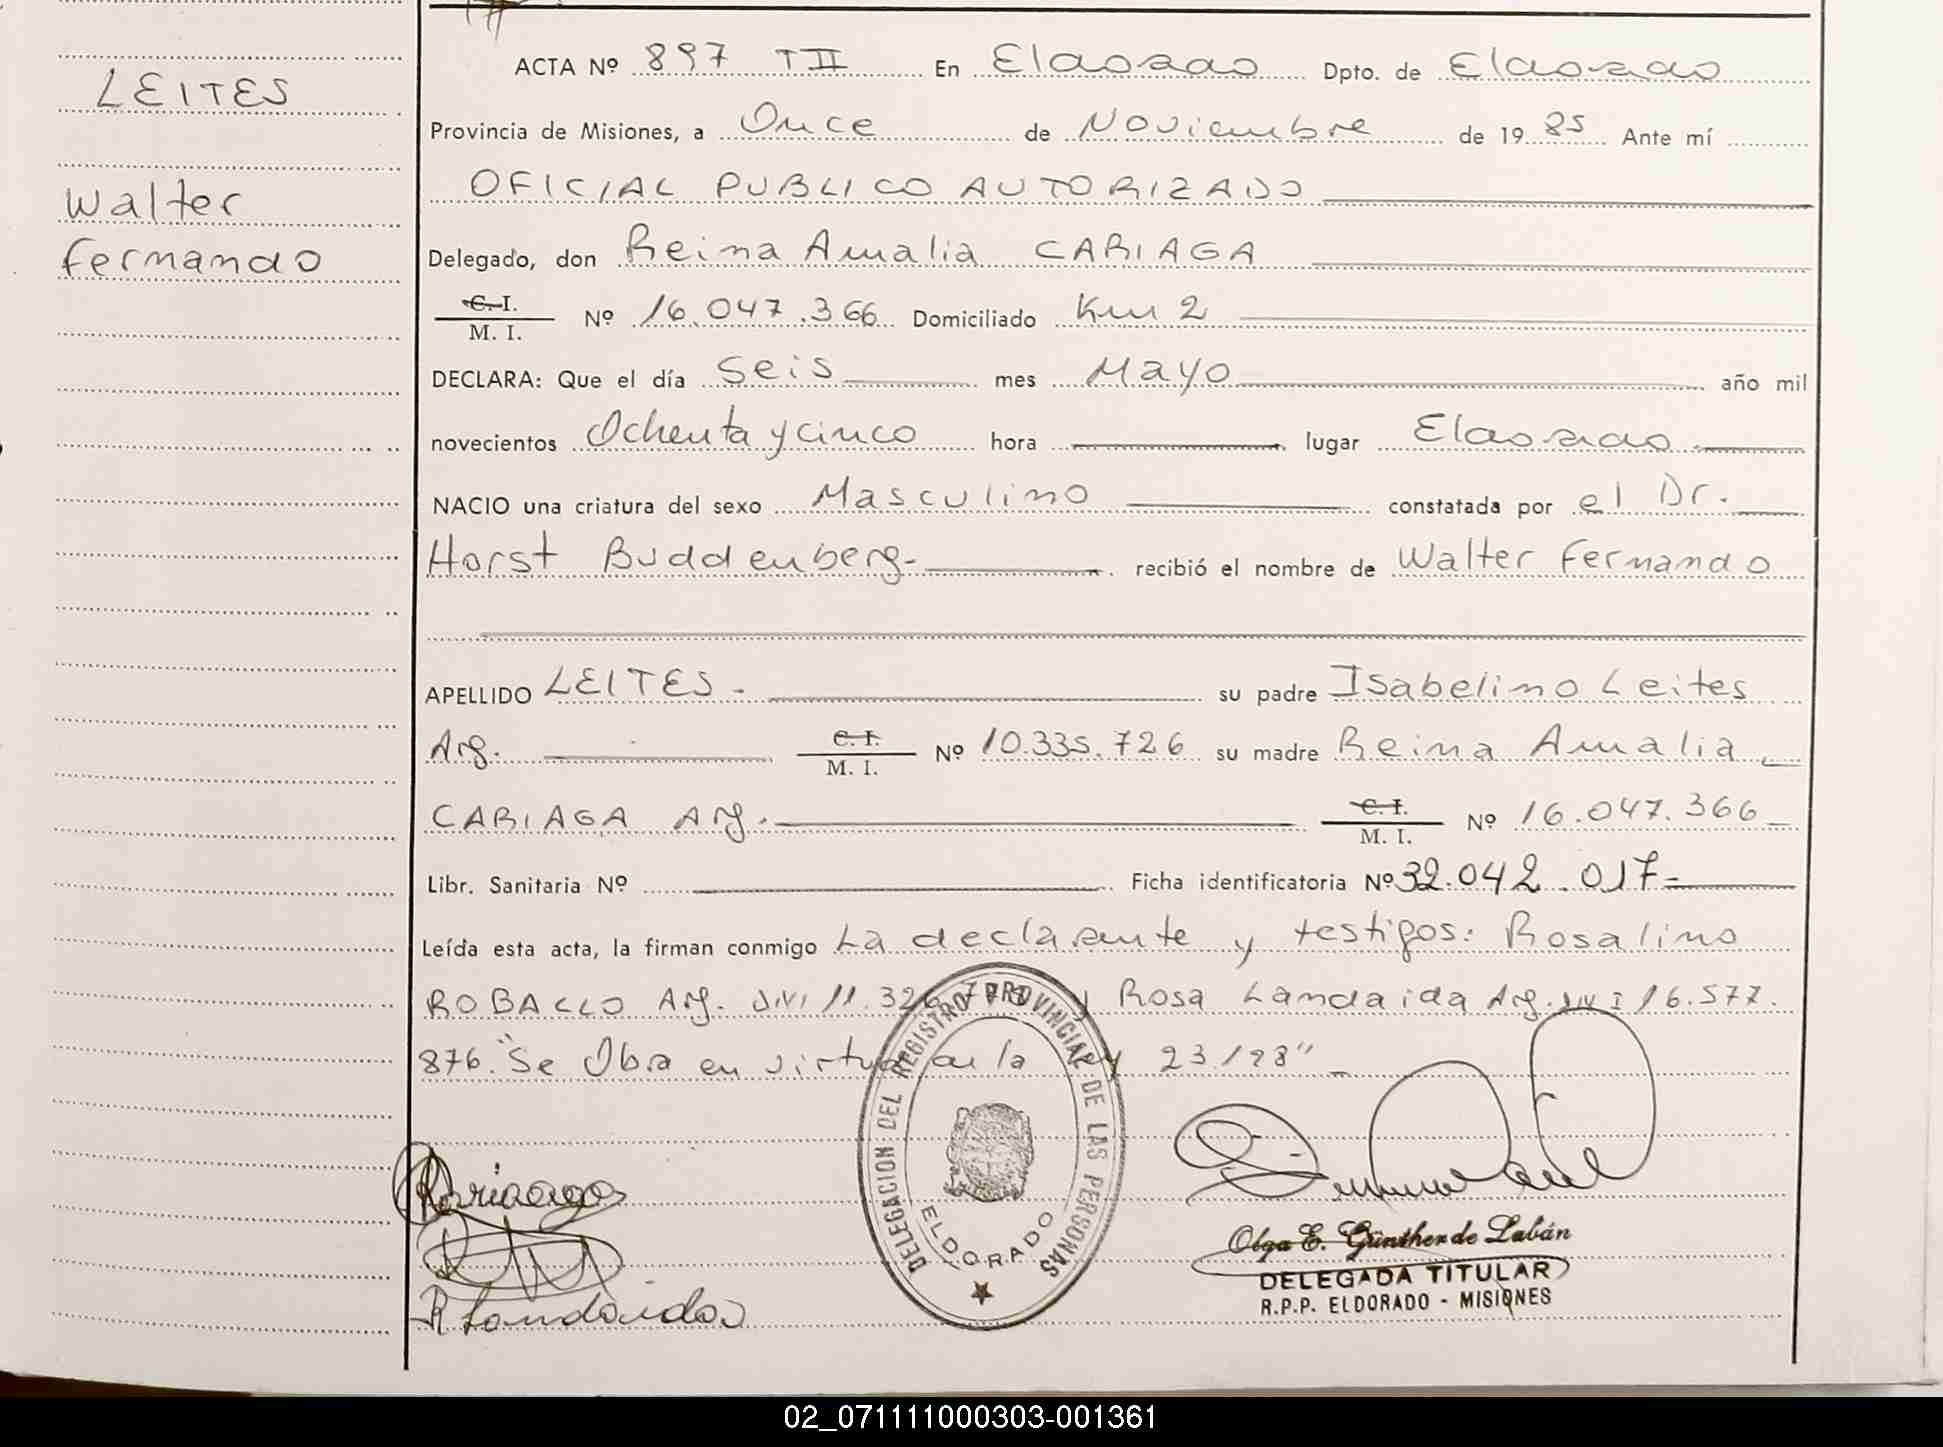 LEITES
Walter
Fernando
ACTA Nº 897 T II En Eldorado Dpto. de Eldorado
Provincia de Misiones, a Once de Noviembre de 19 85 Ante mí
OFICIAL PUBLICO AUTORIZADO
Delegado, don Reina Amalia CARIAGA
C. I.
M. I. Nº 16.047.366 Domiciliado Km 2
DECLARA: Que el día Seis mes Mayo año mil
novecientos Ochenta y cinco hora lugar Eldorado.
NACIO una criatura del sexo Masculino constatada por el Dr.
Horst Buddenberg- recibió el nombre de Walter Fernando
APELLIDO LEITES - su padre Isabelino Leites
Arg. C. I.
M. I. Nº 10.335.726 su madre Reina Amalia
CARIAGA Arg. C. I.
M. I. Nº 16.047.366
Libr. Sanitaria Nº Ficha identificatoria Nº 32.042.017-
Leída esta acta, la firman conmigo La declarante y testigos: Rosalino
ROBALLO Arg. DNI 11.326. y Rosa Landaida Arg. DNI 16.577.
876. "Se Obra en virtud de la Ley 23/28"
Cariaga
R Landaida
DELEGACION DEL REGISTRO PROVINCIAL DE LAS PERSONAS
ELDORADO
Olga E. Günther de Labán
DELEGADA TITULAR
R.P.P. ELDORADO - MISIONES
02_071111000303-001361